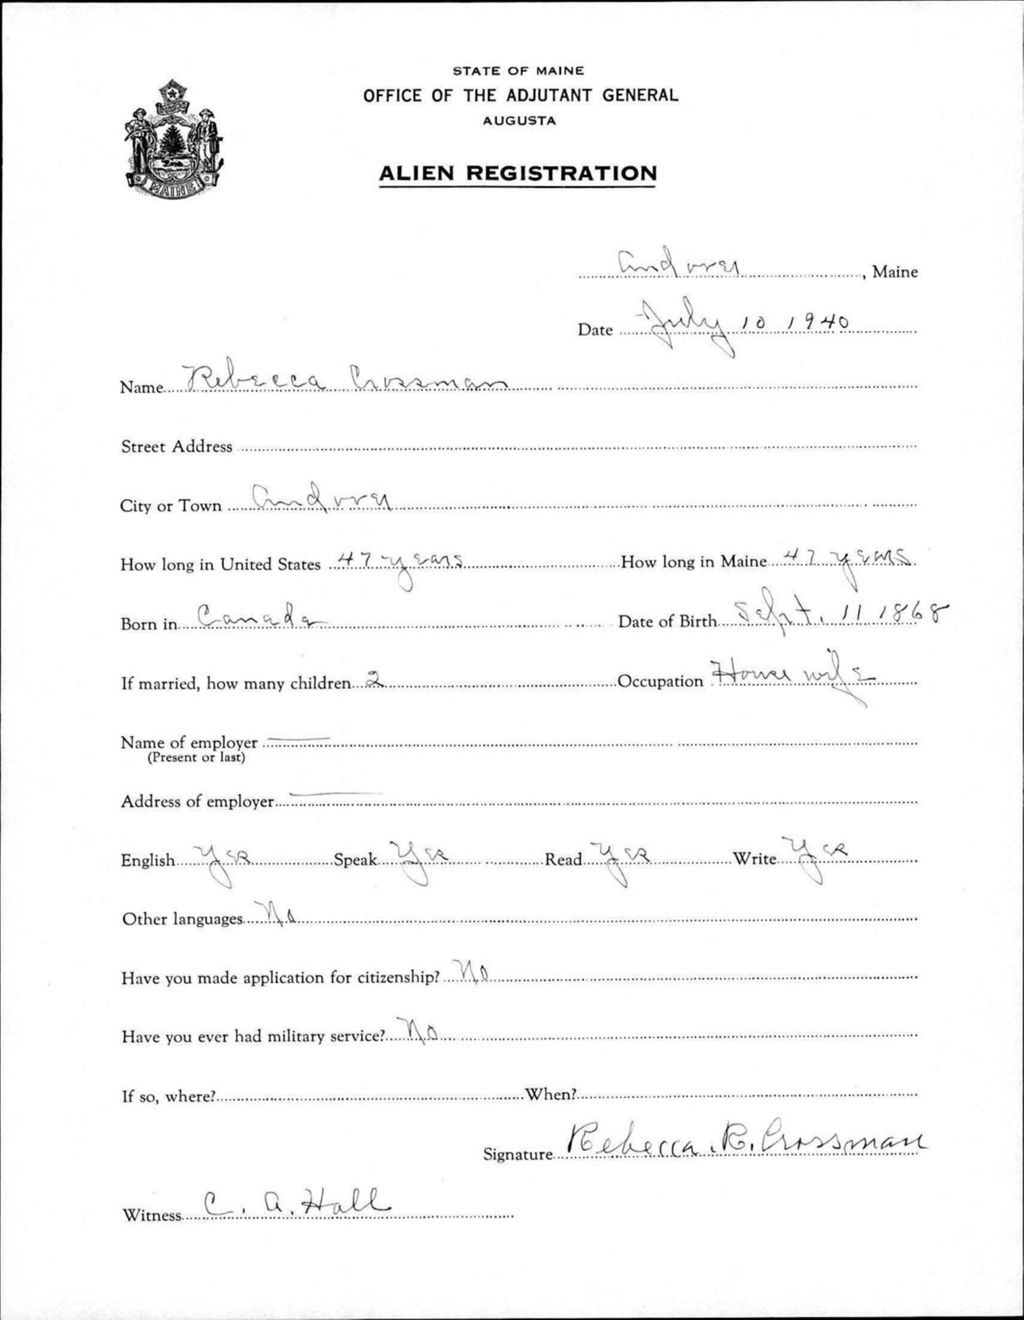 STATE OF MAINE
OFFICE OF THE ADJUTANT GENERAL
AUGUSTA
ALIEN REGISTRATION
MAINE
Andover, Maine
Date July 10 1940
Name Rebecca Crossman
Street Address
City or Town Andover
How long in United States 47 years How long in Maine 47 years
Born in Canada Date of Birth Sept. 11 1868
If married, how many children 2 Occupation House wife
Name of employer
(Present or last)
Address of employer
English Yes Speak Yes Read Yes Write Yes
Other languages No
Have you made application for citizenship? No
Have you ever had military service? No
If so, where? When?
Signature Rebecca. R. Crossman
Witness C. A. Hall